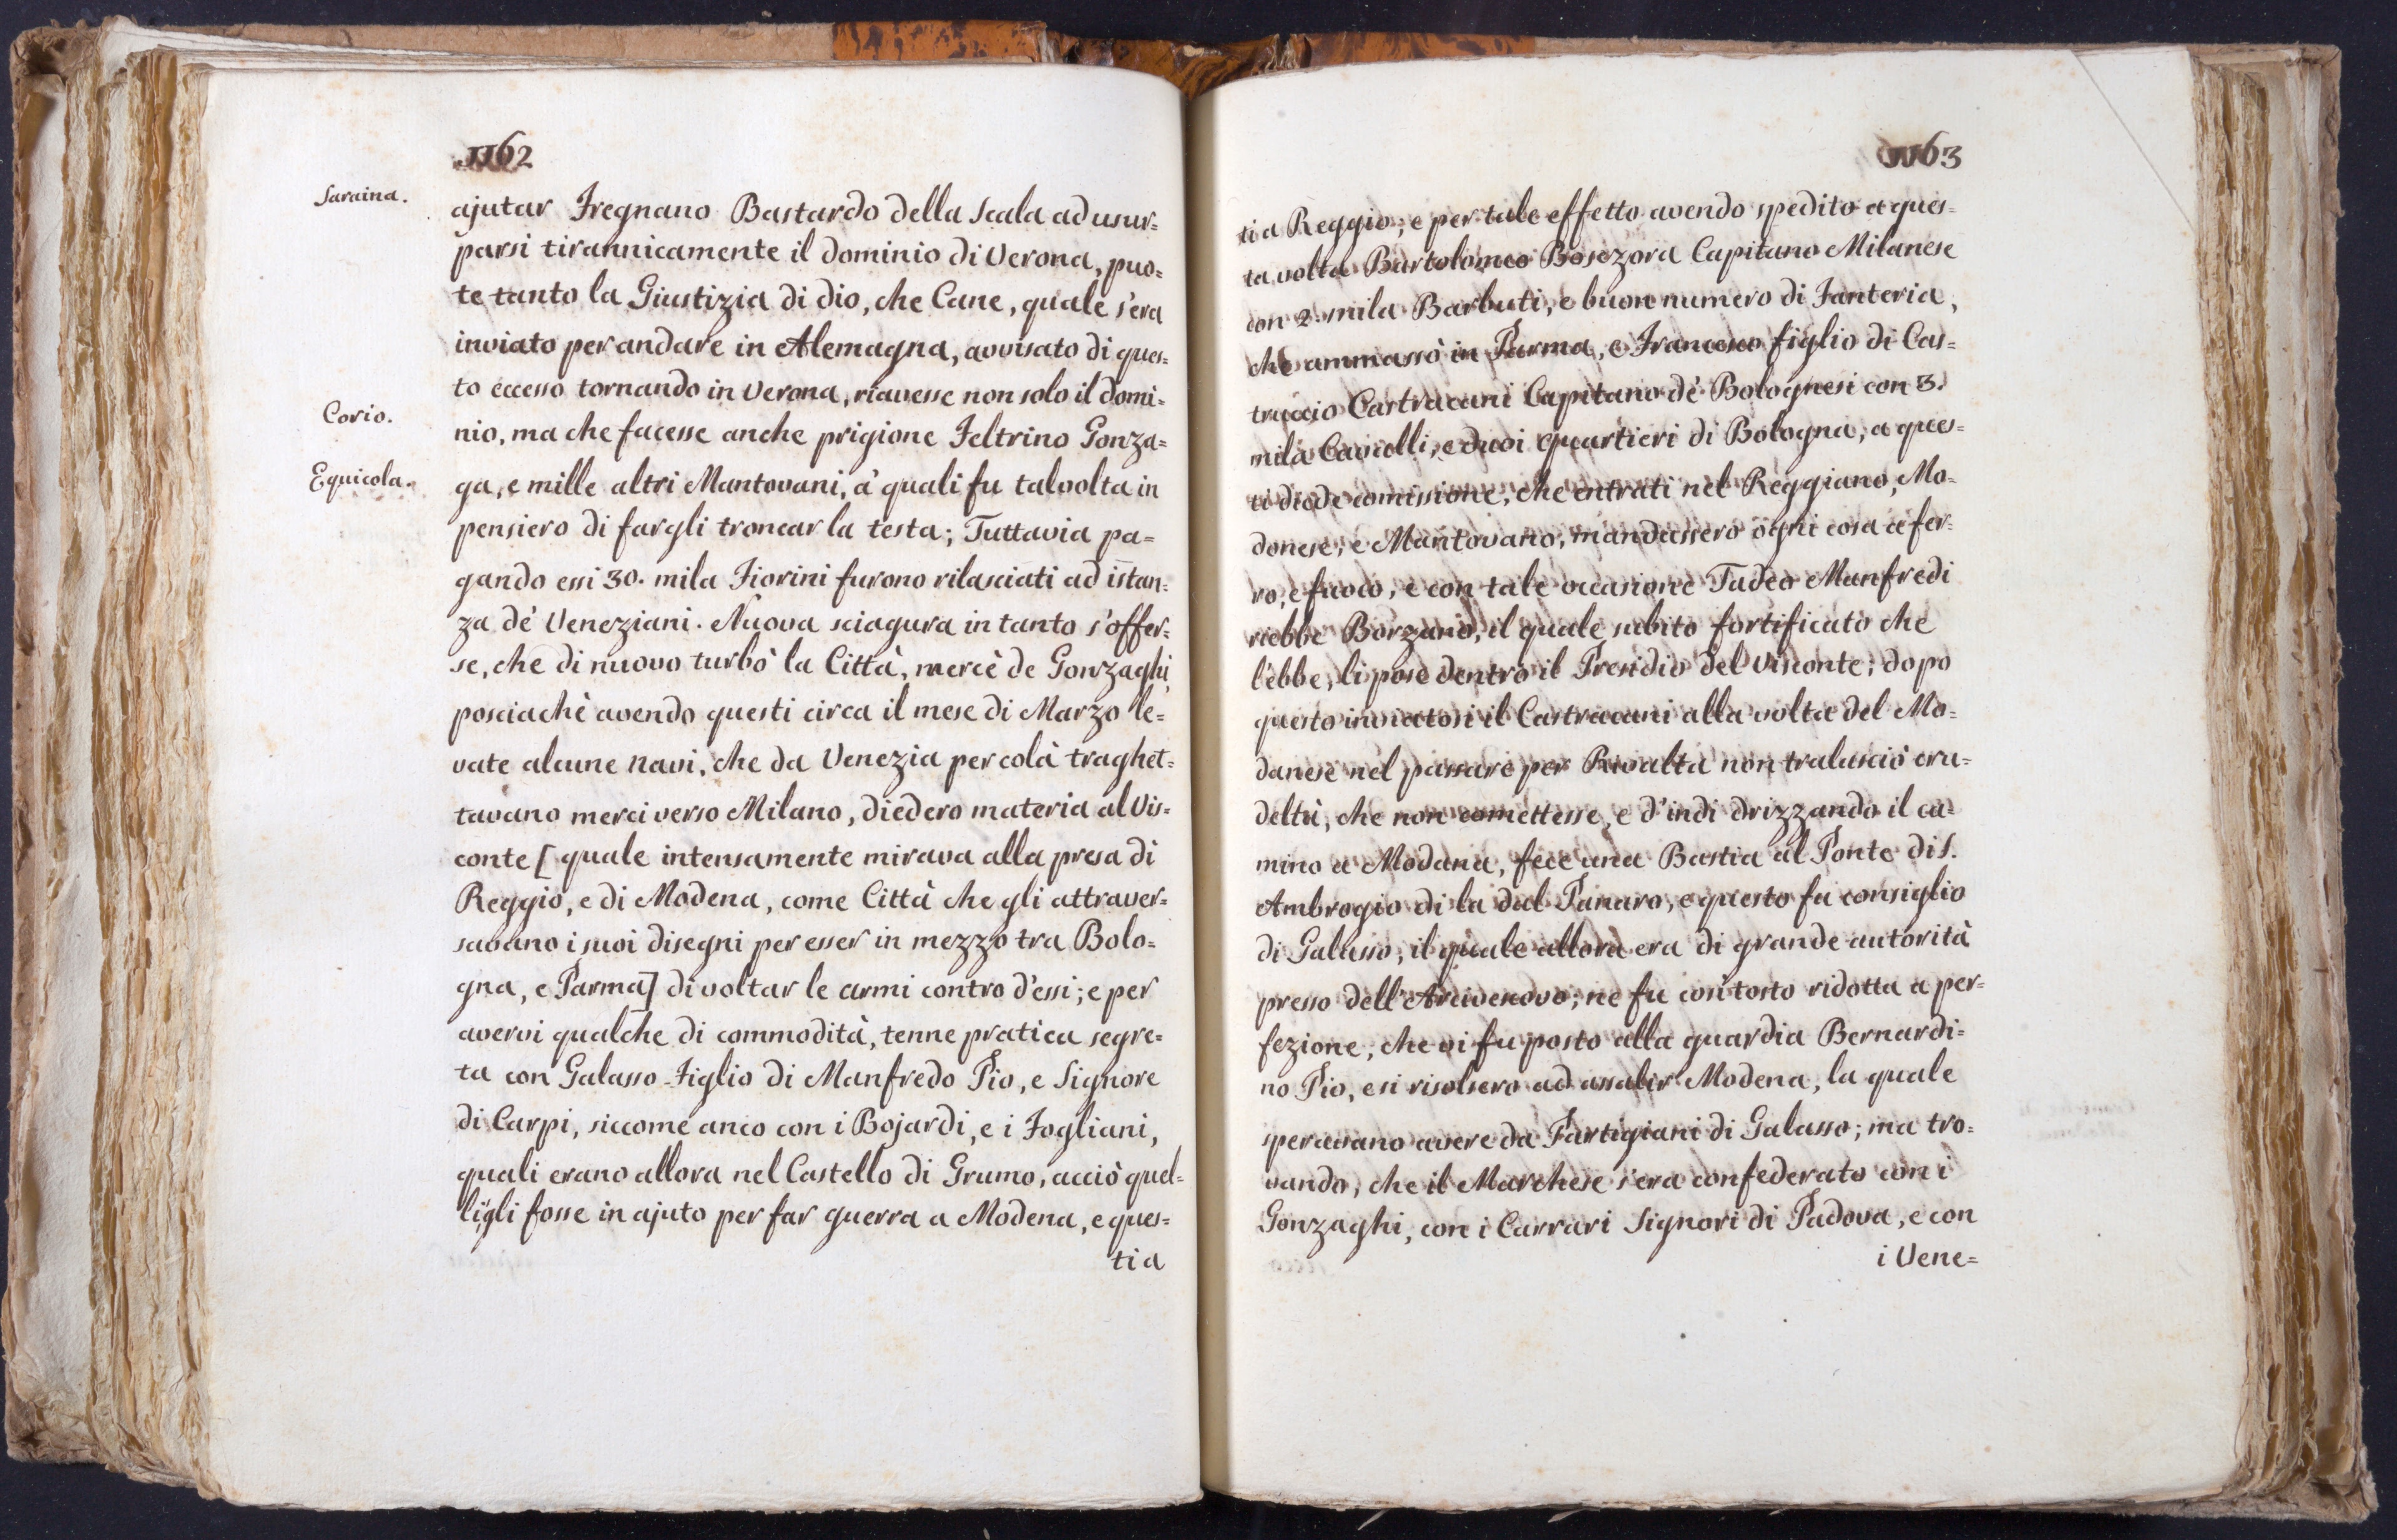 1162
Saraina.
ajutar Fregnano Bastardo della Scala ad usur=
parsi tirannicamente il dominio di Verona, puo=
te tanto la Giustizia di dio, che Cane, quale s'era
inviato per andare in Alemagna, avvisato di ques=
to eccesso tornando in Verona, riavesse non solo il domi=
Corio.
nio, ma che facesse anche prigione Feltrino Gonza=
Equicola.
ga, e mille altri Mantovani, a' quali fu talvolta in
pensiero di fargli troncar la testa; Tuttavia pa=
gando essi 30. mila Fiorini furono rilasciati ad istan=
za de' Veneziani. Nuova sciagura in tanto s'offer=
se, che di nuovo turbò la Città, mercè de Gonzaghi,
posciachè avendo questi circa il mese di Marzo le=
vate alcune navi, che da Venezia per colà traghet=
tavano merci verso Milano, diedero materia al Vis=
conte [ quale intensamente mirava alla presa di
Reggio, e di Modena, come Città che gli attraver=
savano i suoi disegni per esser in mezzo tra Bolo=
gna, e Parma] di voltar le armi contro d'essi; e per
avervi qualche di commodità, tenne pratica segre=
ta con Galasso Figlio di Manfredo Pio, e Signore
di Carpi, siccome anco con i Bojardi, e i Fogliani,
quali erano allora nel Castello di Grumo, acciò quel=
li gli fosse in ajuto per far guerra a Modena, e ques=
ti a
1163
ti a Reggio; e per tale effetto avendo spedito a ques=
ta volta Bartolomeo Bosezora Capitano Milanese
con 2. mila Barbuti, e buon numero di Fanteria,
che ammassò in Parma, e Francesco figlio di Cas=
truccio Castracani Capitano de' Bolognesi con 3.
mila Cavalli, e duoi quartieri di Bologna, a ques=
ti diede comissione, che entrati nel Reggiano, Mo=
donese, e Mantovano, mandassero ogni cosa a fer=
ro, e fuoco, e con tale occasione Tadeo Manfredi
riebbe Borzano, il quale subito fortificato che
l'ebbe, li pose dentro il Presidio del Visconte; dopo
questo inviatosi il Castracani alla volta del Mo=
danese nel passare per Rivalta non tralasciò cru=
deltà, che non comettesse, e d'indi drizzando il ca=
mino a Modana, fece una Bastia al Ponte di S.
Ambrogio di la dal Panaro, e questo fu consiglio
di Galasso, il quale allora era di grande autorità
presso dell'Arcivescovo; ne fu così tosto ridotta a per=
fezione, che vi fu posto alla guardia Bernardi=
no Pio, e si risolsero ad assalir Modena, la quale
speravano avere da Partigiani di Galasso; ma tro=
vando, che il Marchese s'era confederato con i
Gonzaghi, con i Carrari Signori di Padova, e con
i Vene=